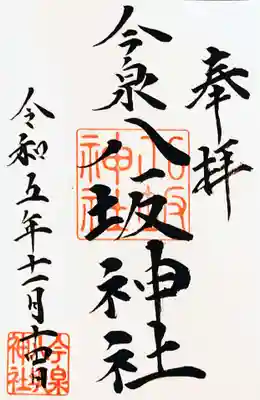 奉拝
今泉八坂神社
令和五年十一月十四日
八坂神社